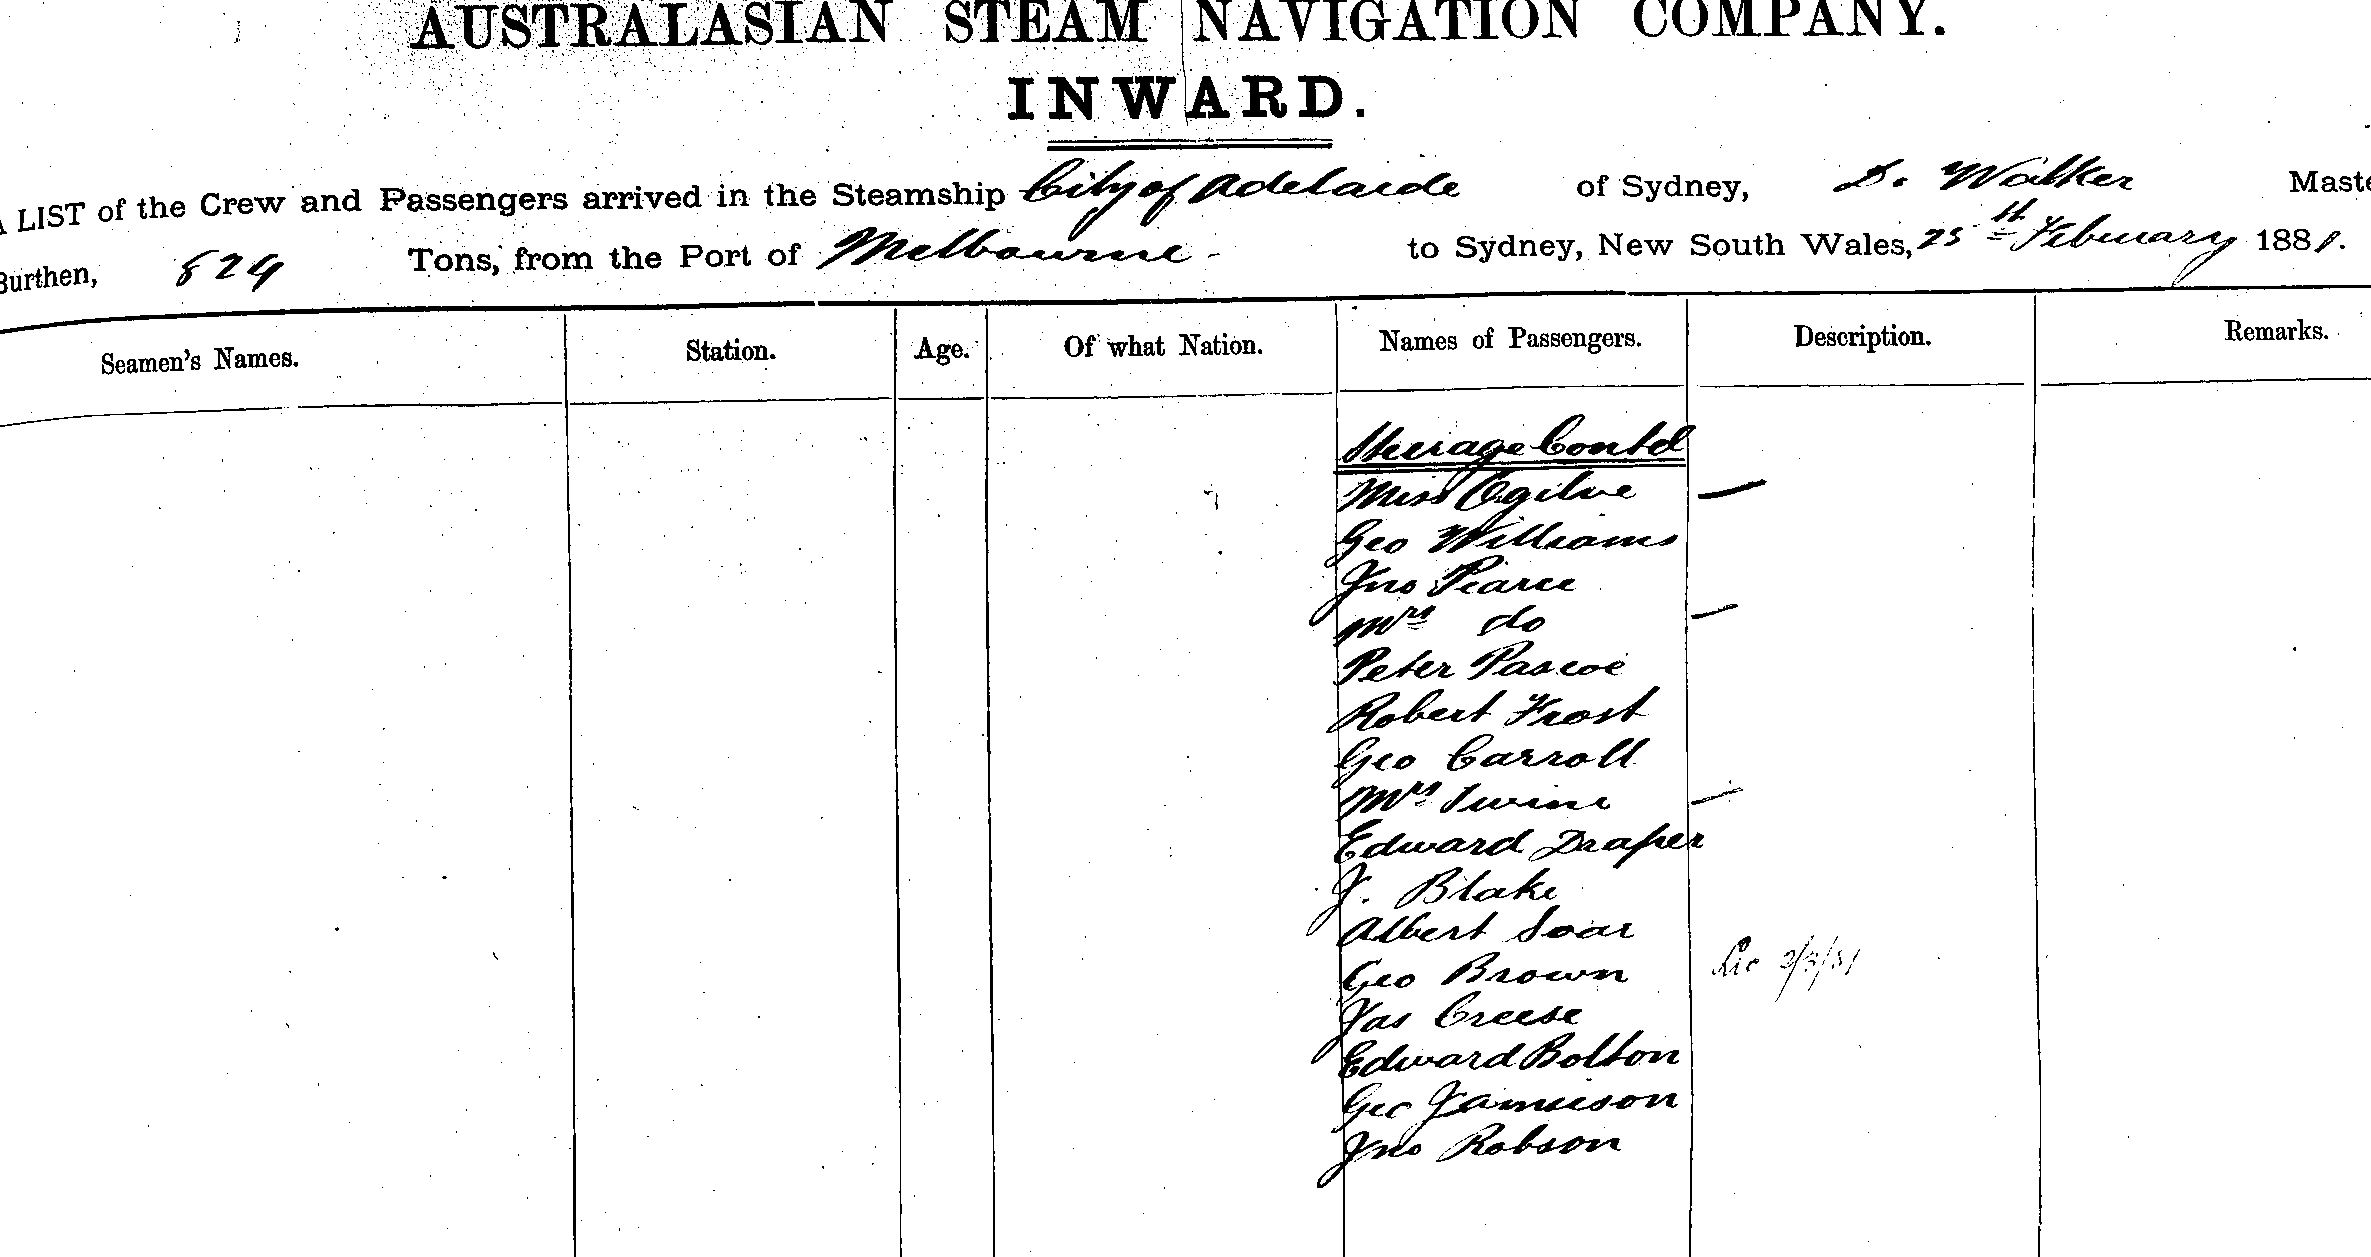 AUSTRALASIAN STEAM NAVIGATION COMPANY.
INWARD.
A LIST of the Crew and Passengers arrived in the Steamship City of Adelaide of Sydney, D. Walker Maste
Burthen, 824 Tons, from the Port of Melbourne - to Sydney, New South Wales, 25th February 1881.
Seamen's Names. Station. Age. Of what Nation. Names of Passengers. Description. Remarks.
Steerage Contd
Miss Ogilvie —
Geo Williams
Jno Pearce
Mrs do —
Peter Pascoe
Robert Frost
Geo Carroll
Mrs Irvine —
Edward Draper
J. Blake
Albert Soar
Geo Brown 2/3/81
Jas Creese
Edward Bolton
Geo Jamieson
Jno Robson